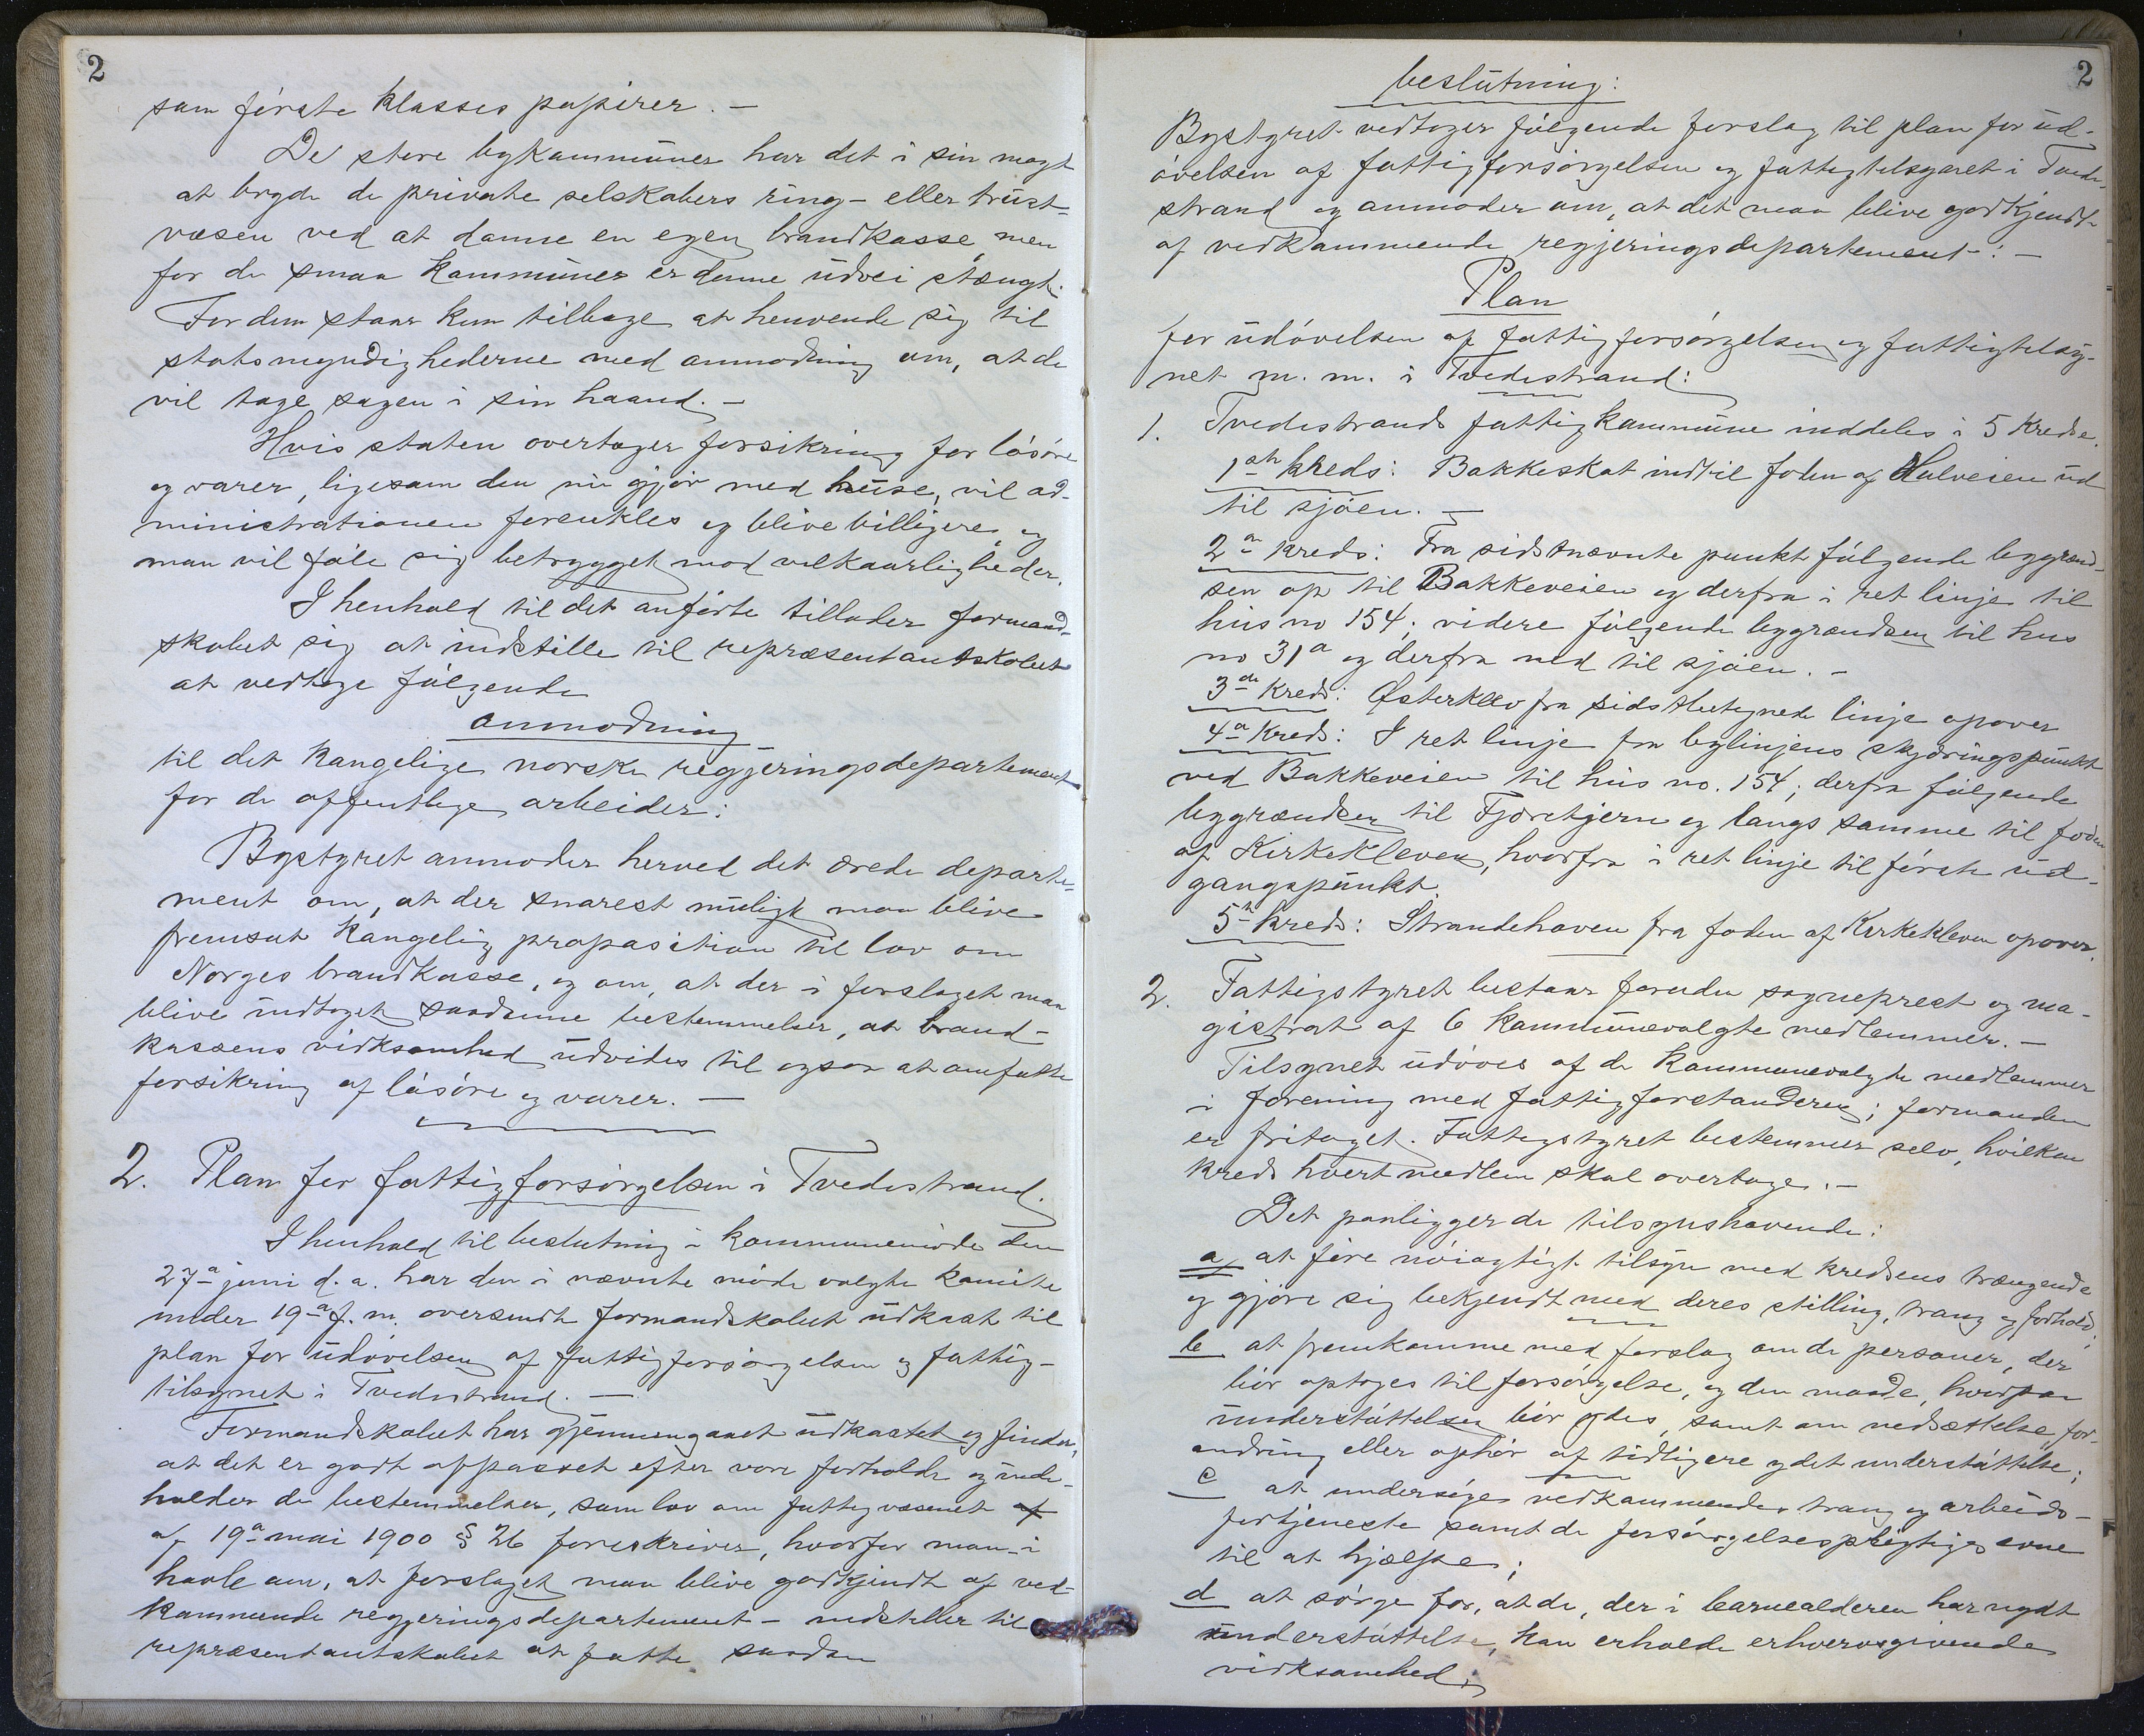 2
som første klasses papirer. –
De store bykommuner har det i sin magt
at bryde de private selskabers ring- eller trust-
væsen ved at danne en egen brandkasse, men
for de smaa kommuner er denne udvei stængt.
For dem staar kun tilbage at henvende sig til
statsmyndighederne med anmodning om, at de
vil tage sagen i sin haand. –
Hvis staten overtager forsikring for løsøre
og varer, ligesom den nu gjør med huse, vil ad-
ministrationen forenkles og blive billigere, og
man vil føle sig betrygget mod vilkaarligheder.
I henhold til det anførte tillader formand-
skabet sig at indstille til repræsentantskabet
at vedtage følgende
anmodning
til det kongelige norske regjeringsdepartement
for de offentlige arbeider:
Bystyret anmoder herved det ærede departe-
ment om, at der snarest muligt maa blive
fremsat kongelig proposition til lov om
Norges brandkasse, og om, at der i forslaget maa
blive indtaget saadanne bestemmelser, at brand-
kassens virksomhed udvides til ogsaa at omfatte
forsikring af løsøre og varer. –
2. Plan for fattigforsørgelsen i Tvedestrand.
I henhold til beslutning i kommunemøde den
27a juni d. a. har den i nævnte møde valgte komite
under 19a f. m. oversendt formandskabet udkast til
plan for udøvelsen af fattigforsørgelsen og fattig-
tilsynet i Tvedestrand. –
Formandskabet har gjennemgaaet udkastet og finder,
at det er godt afpasset efter vore forholde og inde-
holder de bestemmelser, som lov om fattigvæsenet af
af 19a mai 1900 § 26 foreskriver, hvorfor man – i
haab om, at forslaget maa blive godkjendt af ved-
kommende regjeringsdepartement – indstiller til
repræsentantskabet at fatte saadan
2
beslutning:
Bystyret vedtager følgende forslag til plan for ud-
øvelsen af fattigforsørgelsen og fattigtilsynet i Tvede-
strand og anmoder om, at det maa blive godkjendt
af vedkommende regjeringsdepartement: –
Plan
for udøvelsen af fattigforsørgelsen og fattigtilsy-
net m. m. i Tvedestrand:
1. Tvedestrands fattigkommune inddeles i 5 kredse.
1ste kreds: Bakkeskot indtil foden af Hulveien ud
til sjøen. –
2n kreds: Fra sidstnævnte punkt følgende bygrænd-
sen op til Bakkeveien og derfra i ret linje til
hus no 154; videre følgende bygrændsen til hus
no 31a og derfra ned til sjøen. –
3de kreds: Østerklev fra sidstbetegnede linje opover
4a kreds: I ret linje fra bylinjens skjæringspunkt
ved Bakkeveien til hus no. 154; derfra følgende
bygrændsen til Tjæretjern og langs samme til foden
af Kirkekleven, hvorfra i ret linje til første ud-
gangspunkt.
5te kreds: Strandehaven fra foden af Kirkekleven opover.
2. Fattigstyret bestaar foruden sogneprest og ma-
gistrat af 6 kommunevalgte medlemmer. –
Tilsynet udøves af de kommunevalgte medlemmer
i forening med fattigforstanderen; formanden
er fritaget. Fattigstyret bestemmer selv, hvilken
kreds hvert medlem skal overtage. –
Det paaligger de tilsynshavende:
a, at føre nøiagtigt tilsyn med kredsens trængende
og gjøre sig bekjendt med deres stilling, trang og forhold;
b at fremkomme med forslag om de personer, der
bør optages til forsørgelse, og den maade, hvorpaa
understøttelsen bør ydes, samt om nedsættelse, for-
andring eller ophør af tidligere ydet understøttelse;
c at undersøge vedkommendes trang og arbeids-
fortjeneste samt de forsørgelsespligtiges evne
til at hjælpe;
d at sørge for, at de, der i barnealderen har nydt
understøttelse, kan erholde erhvervsgivende
virksomhed;